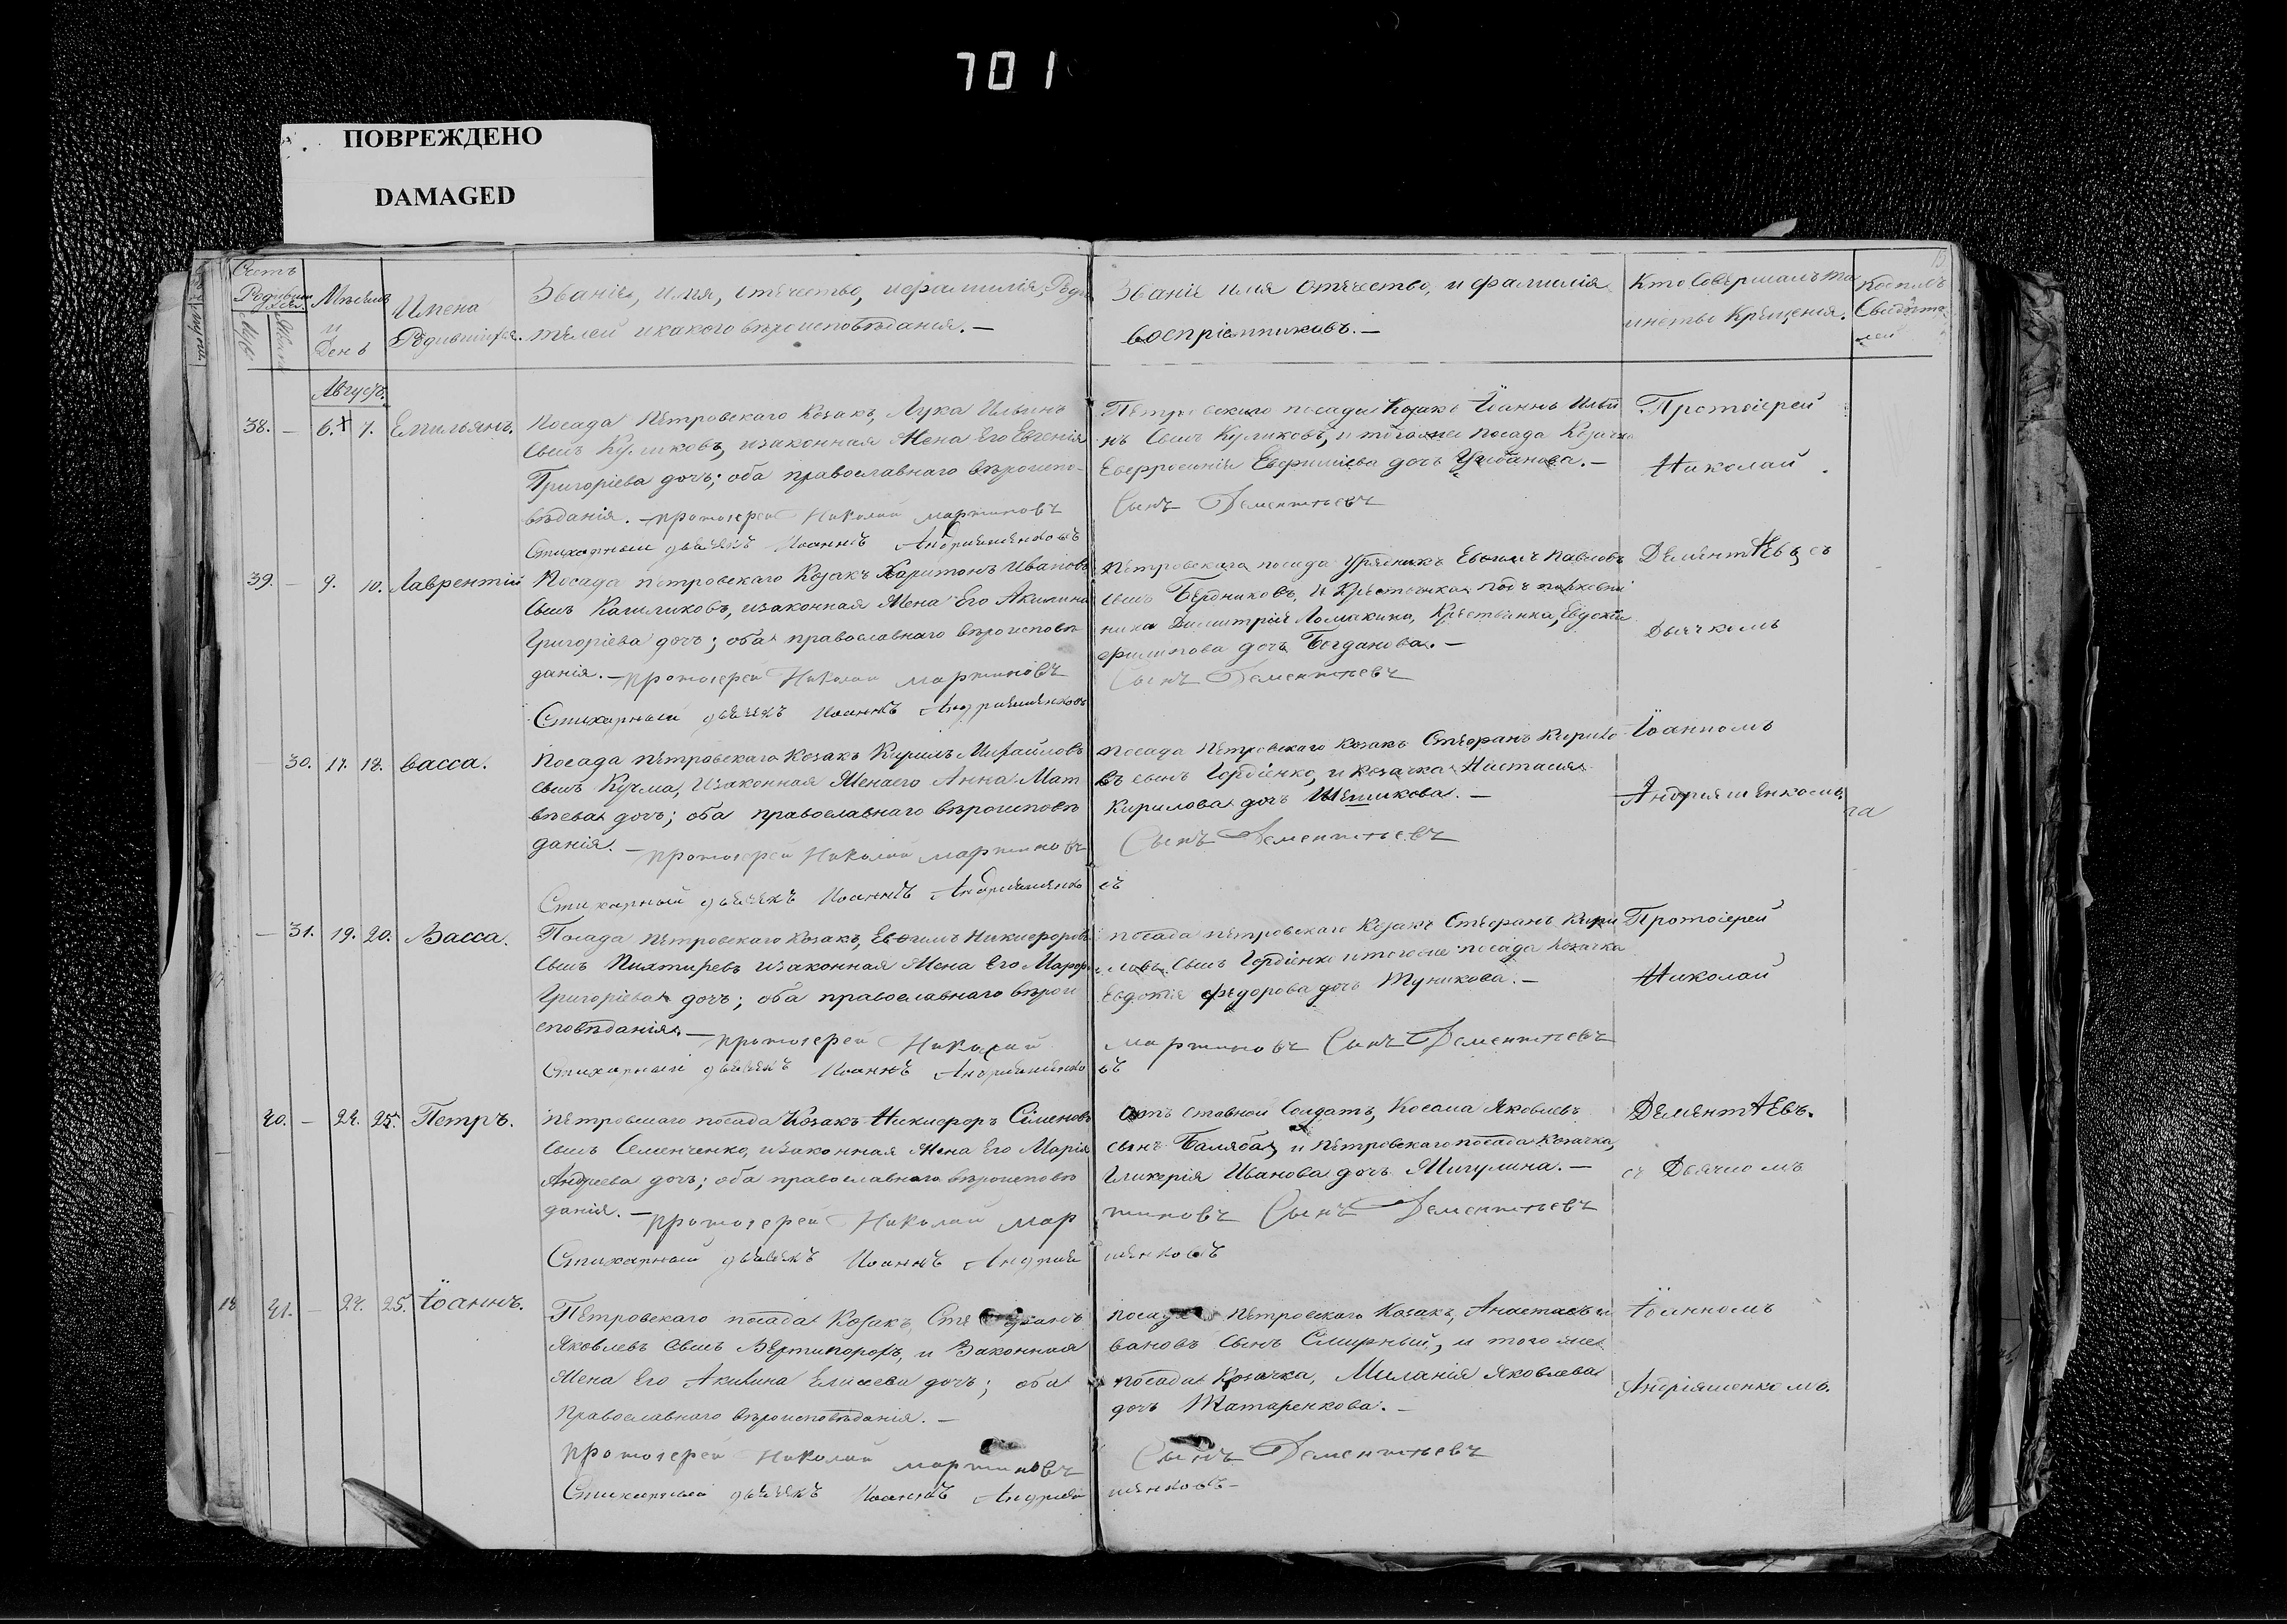 701
ПОВРЕЖДЕНО
DAMAGED
Счетъ
Родивших
ся.
Мѣсяцъ
и
День
Имена
Родившихся.
Званіе, имя, отчество, и фамилія, Роди
телей и какого вѣроисповѣданія. —
Званіе имя отчество, и фамилія
воспріемниковъ. —
Кто совершалъ та
инство Крещенія.
Свидѣте
лей
Августъ.
38. — 6. 7. Емильянъ.
Посада Петровскаго Козакъ, Лука Ильинъ
сынъ Куликовъ, и законная Жена Его Евгенія
Григоріева дочь; оба православнаго вѣроиспо-
вѣданія. — протоіерей Николай мартиновъ
Стихарный дьячекъ Иоаннъ Андрияшенковъ
Петровскаго посада Козакъ Іоаннъ Ильи
нъ сынъ Куликовъ, и того же посада Козачка
дочь —
Сынъ Дементьевъ
Протоіерей
Николай
39. — 9. 10. Лаврентій
Посада петровскаго Козакъ Харитонъ Ивановъ
сынъ и законная Жена Его Акилина
Григоріева дочь; оба православнаго вѣроисповѣ
данія. — протоіерей Николай мартиновъ
Стихарный дьячекъ Иоаннъ Андрияшенковъ
Петровскаго посада Урядникъ Евфимъ Павловъ
сынъ Бердниковъ, и
ника Димитрія Ломакина, Крестьянка, Евдокія
филипова дочь Богданова. —
Сынъ Дементьевъ
Дементьевъ, съ
Дьячкомъ
— 30. 17. 18. васса.
Посада петровскаго Козакъ Кирилъ Михайловъ
сынъ Кучма, и законная Жена его Анна Мат
вѣева дочь; оба православнаго вѣроисповѣ
данія. — протоіерей Николай мартиновъ
Стихарный дьячекъ Иоаннъ Андрияшенко
посада Петровскаго Козакъ Стефанъ Кирило
въ сынъ Гордіенко, и Козачка Настасія
Кирилова дочь —
Сынъ Дементьевъ
въ
Іоанномъ
Андрияшенкомъ.
— 31. 19. 20. Васса.
Посада петровскаго Козакъ, Евфимъ Никифоровъ
сынъ Пихтиревъ и законная Жена Его Марфа
Григоріева дочь; оба православнаго вѣрои
сповѣданія. — протоіерей Николай
Стихарный дьячекъ Иоаннъ Андрияшенко
посада петровскаго Козакъ Стефанъ Кири
ловъ сынъ Гордіенко и того же посада Козачка
Евдокія федорова дочь Туникова. —
мартиновъ Сынъ Дементьевъ
въ
Протоіерей
Николай
40. — 24. 25. Петръ.
петровскаго посада Козакъ Никифоръ Семеновъ
сынъ Семенченко, и законная Жена Его Марія
Андреева дочь; оба православнаго вѣроисповѣ
данія. — протоіерей Николай мар
Стихарный дьячекъ Иоаннъ Андрия
Отъ ставной Солдатъ, Косма Яковлевъ
сынъ Баляба, и петровскаго посада Козачка,
Гликерія Иванова дочь Мигулина. —
тиновъ Сынъ Дементьевъ
шенковъ
Дементьевъ.
съ Дьячкомъ
41. — 24. 25. Іоаннъ.
Петровскаго посада Козакъ, Стефанъ
Яковлевъ сынъ Вертипорохъ, и Законная
Жена Его Акилина Елисеева дочь; оба
Православнаго вѣроисповѣданія. —
протоіерей Николай мартиновъ
Стихарный дьячекъ Иоаннъ Андрия
посада Петровскаго Козакъ, Анастасъ и
вановъ сынъ Смирный, и того же
посада Козачка, Миланія Яковлева
дочь Татаренкова. —
Сынъ Дементьевъ
шенковъ —
Іоанномъ
Андріяшенкомъ.